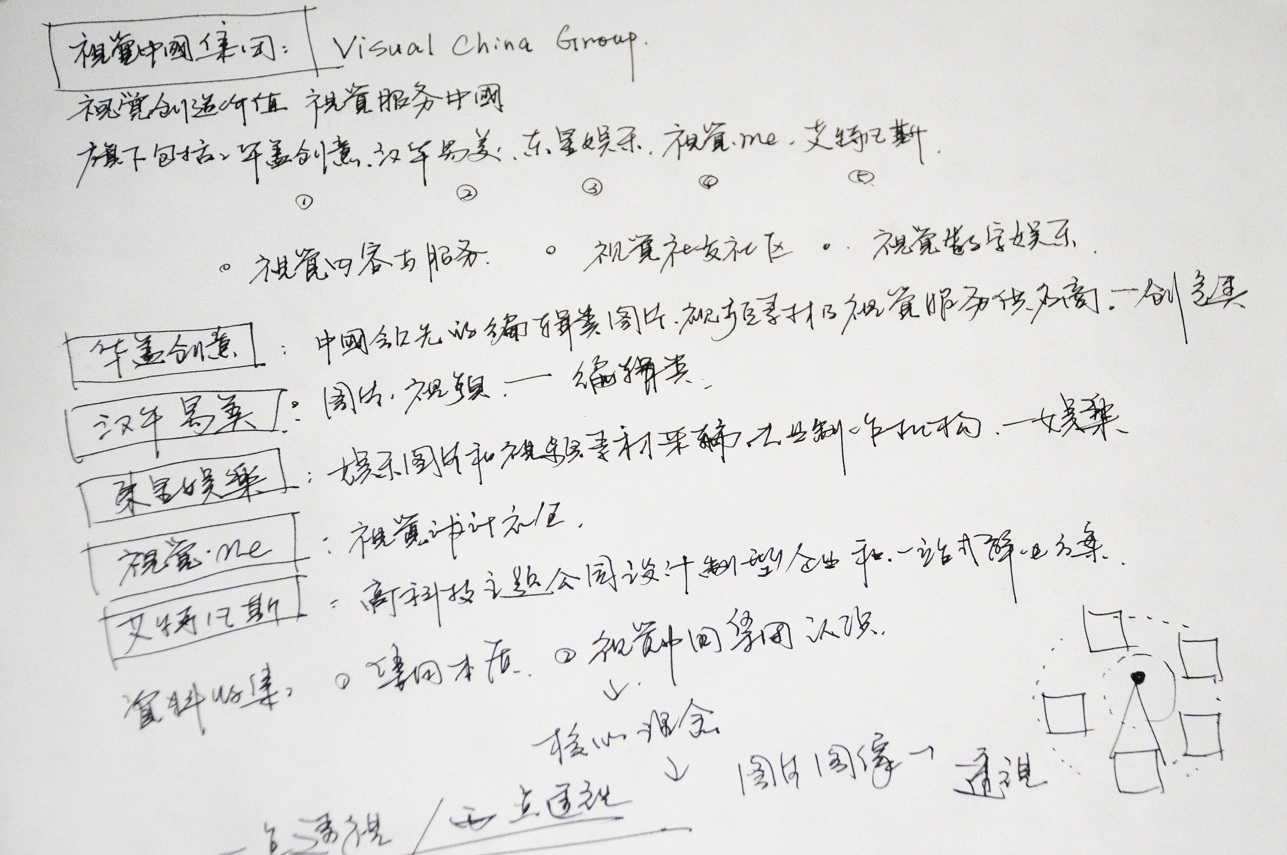 视覺中國集团: Visual China Group.
视覺创造价值 视覺服务中國
旗下包括: 华盖创意、汉华易美、东星娱乐、视覺me、艾特凡斯.
① ② ③ ④ ⑤
。视覺内容与服务. 。视覺社交社区 . 视覺数字娱乐.
华盖创意: 中國領先的编辑类图片、视频素材及视覺服务供应商.一创意类
汉华易美: 图片、视频.一 编辑类.
東星娱樂: 娱乐图片和视频素材采编、及制作机构.一娱樂
视覺.me: 视覺设计社区.
艾特凡斯: 高科技主题公园设计制型企业和一站式解决方案.
資料收集: ① 集团本质. ② 视覺中国集团认识.
↓
核心理念
↓ 图片图像→透视
一点透視 / 两点透视